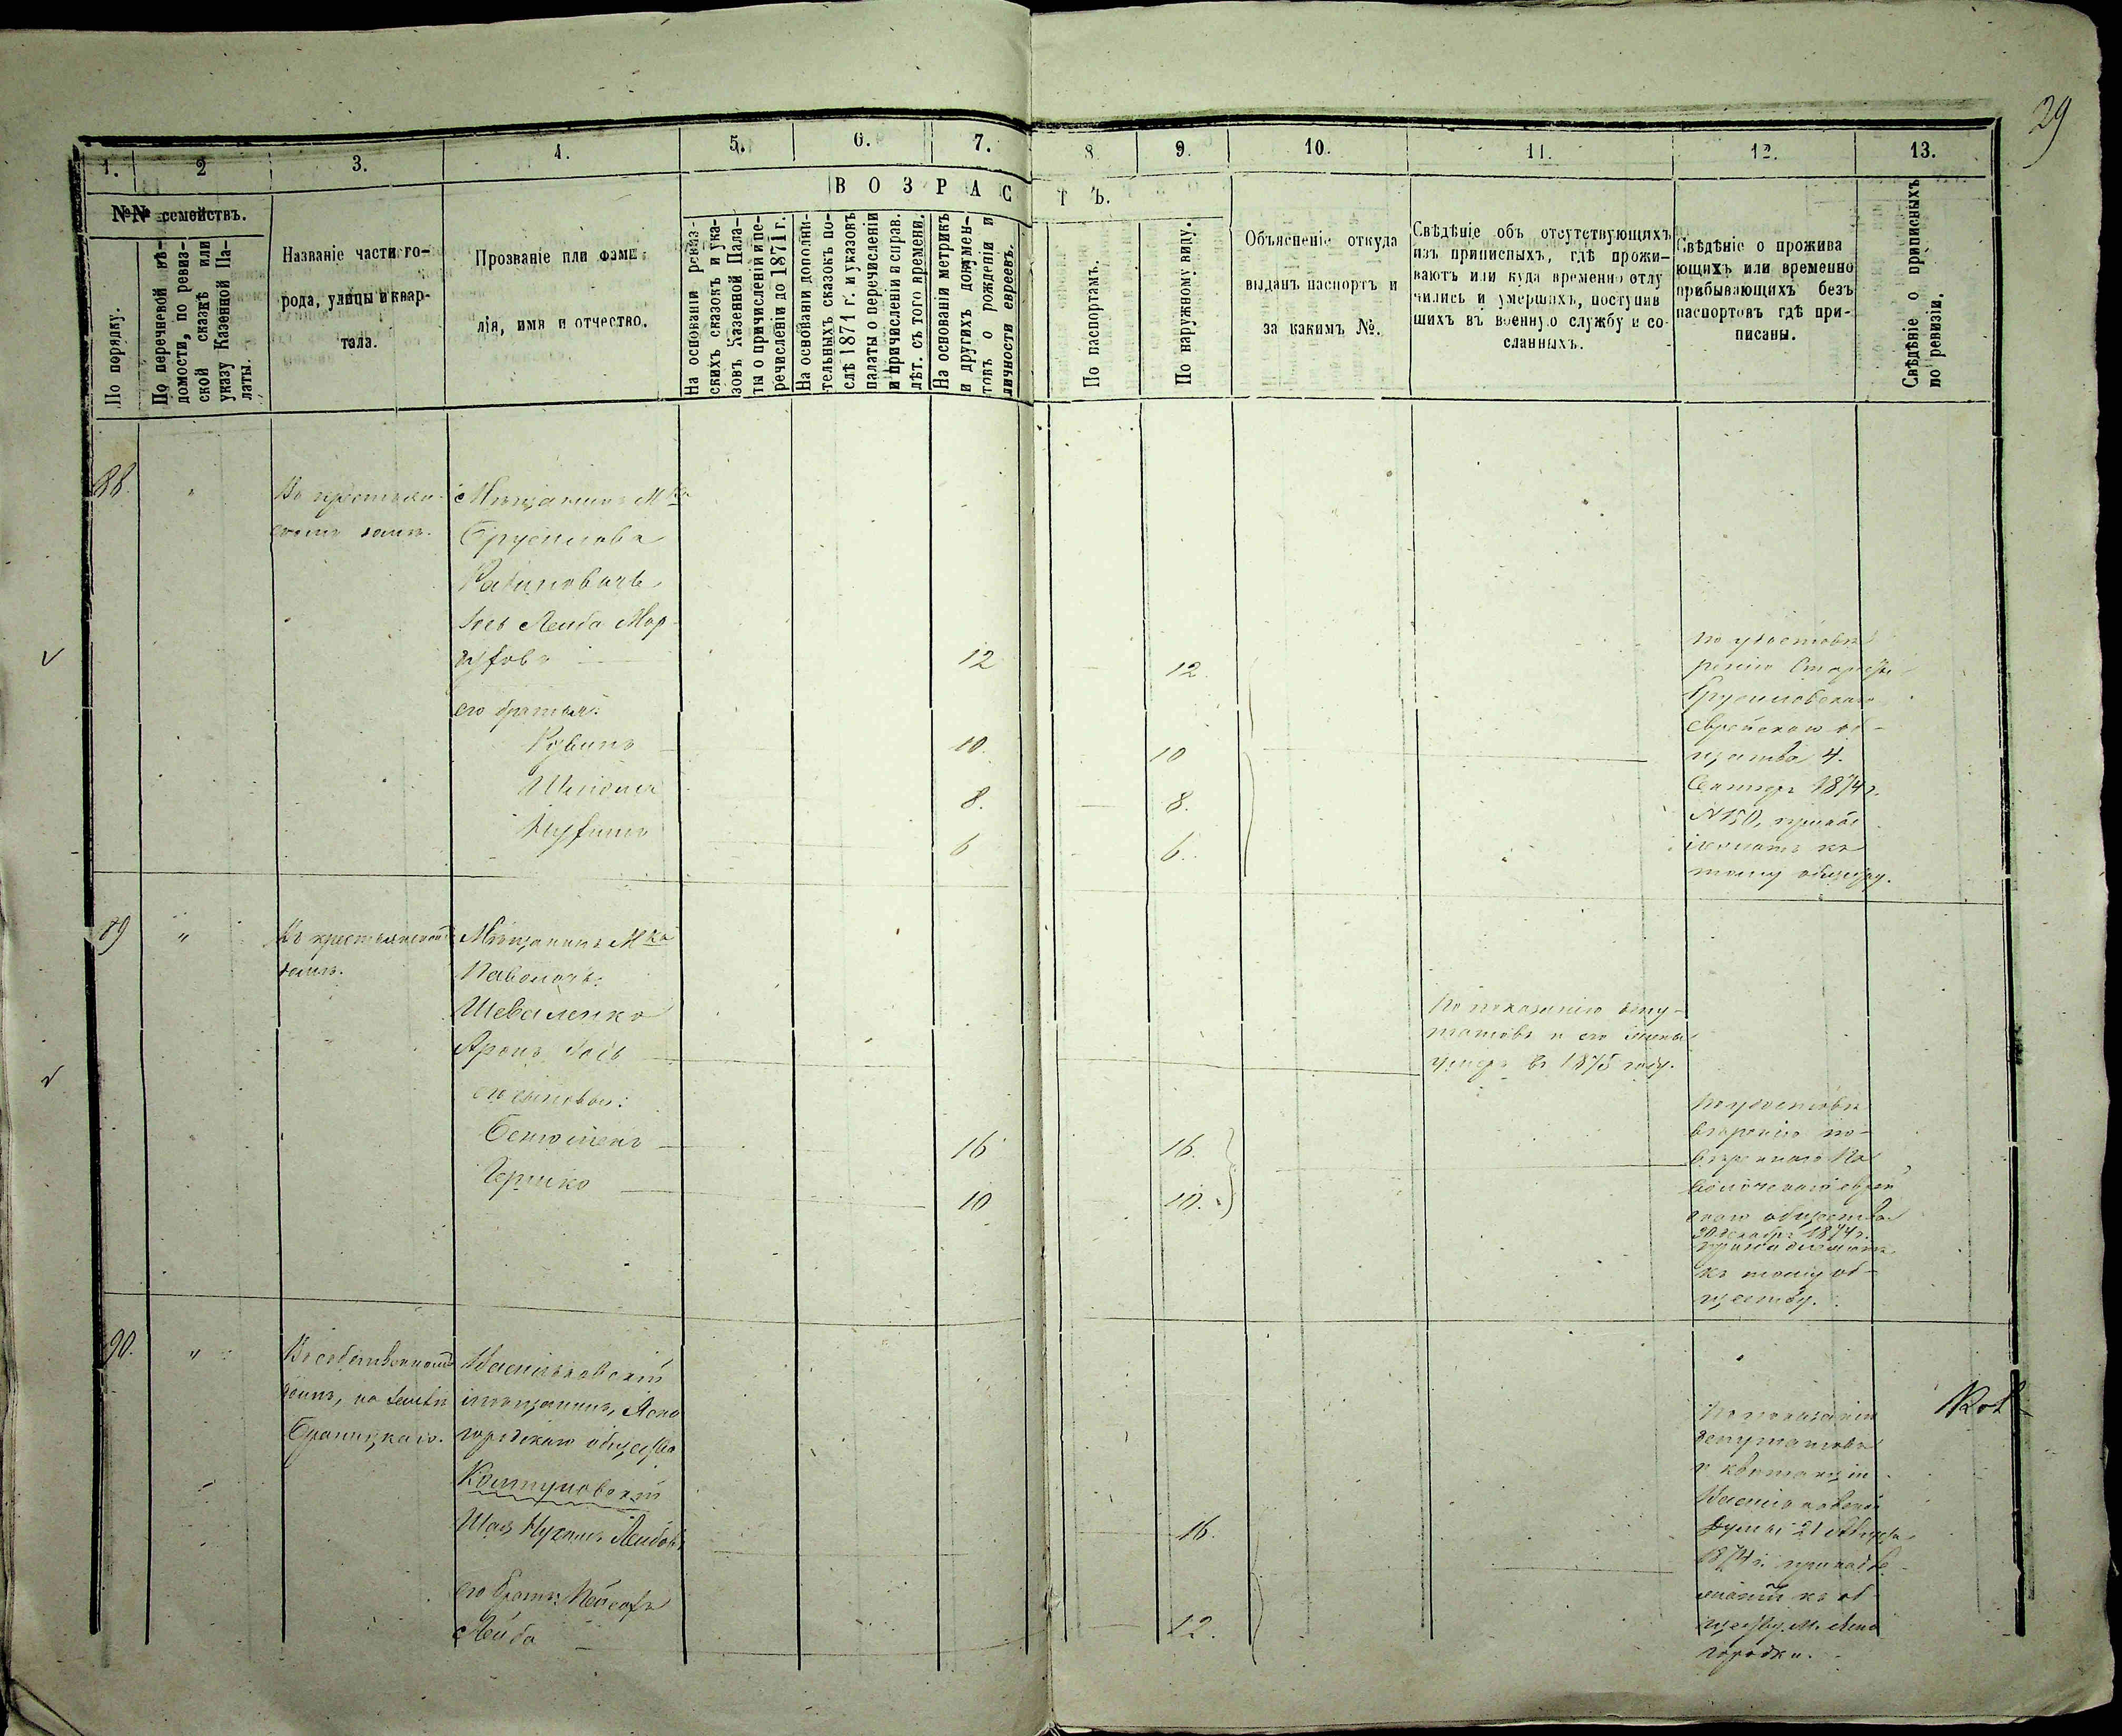 29
1.
2
3.
4.
5.
6.
7.
8
9.
10.
11.
12.
13.
ВОЗРАСТЪ.
№№ семействъ.
По порядку.
По перечневой вѣ-
домости, по ревиз-
ской сказкѣ или
указу Казенной Па-
латы.
Названіе части го-
рода, улицы и квар-
тала.
Прозваніе или фами-
лія, имя и отчество.
На основаніи ревиз-
скихъ сказокъ и ука-
зовъ Казенной Пала-
ты о причисленіи и пе-
речисленіи до 1871 г.
На основаніи дополни-
тельныхъ сказокъ по-
слѣ 1871 г. и указовъ
палаты о перечисленіи
и причисленіи и справ.
лѣт. съ того времени.
На основаніи метрикъ
и другихъ докумен-
товъ о рожденіи и
личности евреевъ.
По паспортамъ.
По наружному виду.
Объясненіе откуда
выданъ паспортъ и
за какимъ №.
Свѣдѣніе объ отсутствующихъ
изъ приписныхъ, гдѣ прожи-
ваютъ или куда временно отлу
чились и умершихъ, поступив
шихъ въ военную службу и со-
сланныхъ.
Свѣдѣніе о прожива
ющихъ или временно
прибывающихъ безъ
паспортовъ гдѣ при-
писаны.
Свѣдѣніе о приписныхъ
по ревизіи.
88.
"
Въ крестьян-
скомъ домѣ.
Мѣщанинъ Мка
Брусилова
Рабиновичъ
Іось Лейба Мор-
12
12.
его братья:
Рувинъ
10
10
Шлёма
8.
8.
6
6.
По удостовѣ
ренію Старосты
Брусиловскаго
Еврейскаго об-
щества 4.
Сентяр. 1874 г.
№ 150, принад
лежатъ къ
тому обществу.
89
"
Въ крестьянскомъ
домѣ.
Мѣщанинъ Мка
Паволочь:
Шеваленко
Аронъ Іось
его сыновья:
Бенюменъ
16
16.
Гершко
10
10.
По показанію депу-
татовъ и его жены
умеръ въ 1875 году.
По удостовѣ
вѣренію по-
вѣреннаго Па
волочскаго еврей
скаго общества
30 декабр. 1874 г.
принадлежатъ
къ тому об-
ществу.
90.
"
Въ собственномъ
домѣ, на землѣ
Браницкаго.
Васильковскій
мѣщанинъ, Ясно
городскаго общества
Колтуновскій
Шая Нухимъ Лейбовъ
16.
его братъ: Іосефъ
Лейба
12.
По показанію
депутатовъ
и квитанціи
Васильковской
Думы 21 Августа
1874 г. принадле-
жащій къ об-
ществу М. Ясно
городки.